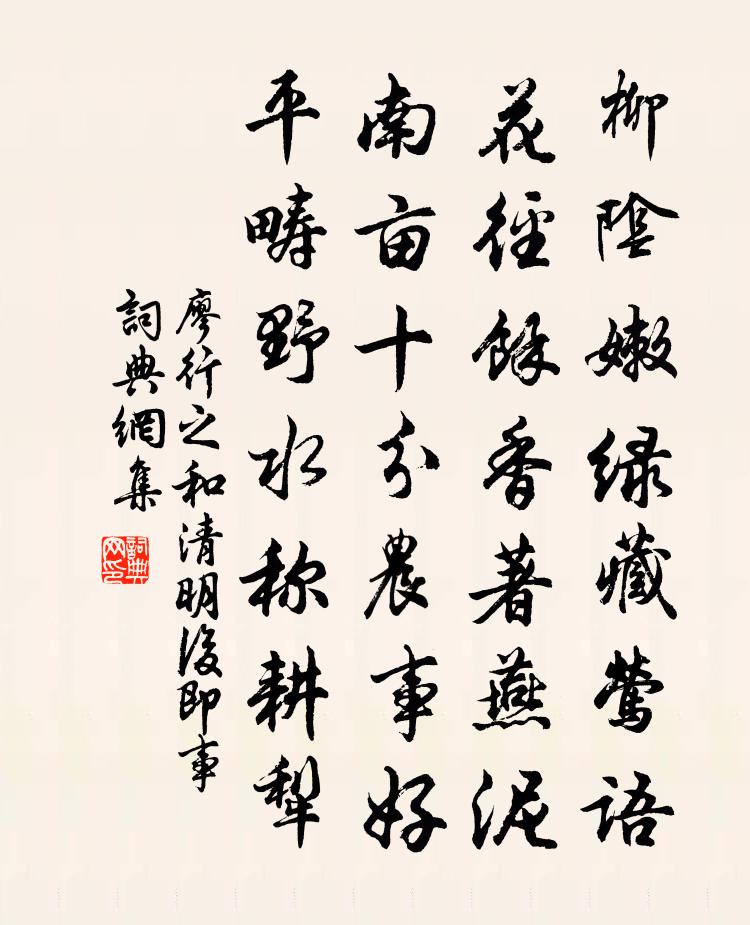 柳陰嫩绿藏鶯語
花徑餘香著燕泥
南亩十分農事好
平疇野水称耕犁
廖行之和清明後即事
詞典網集
詞典
网印